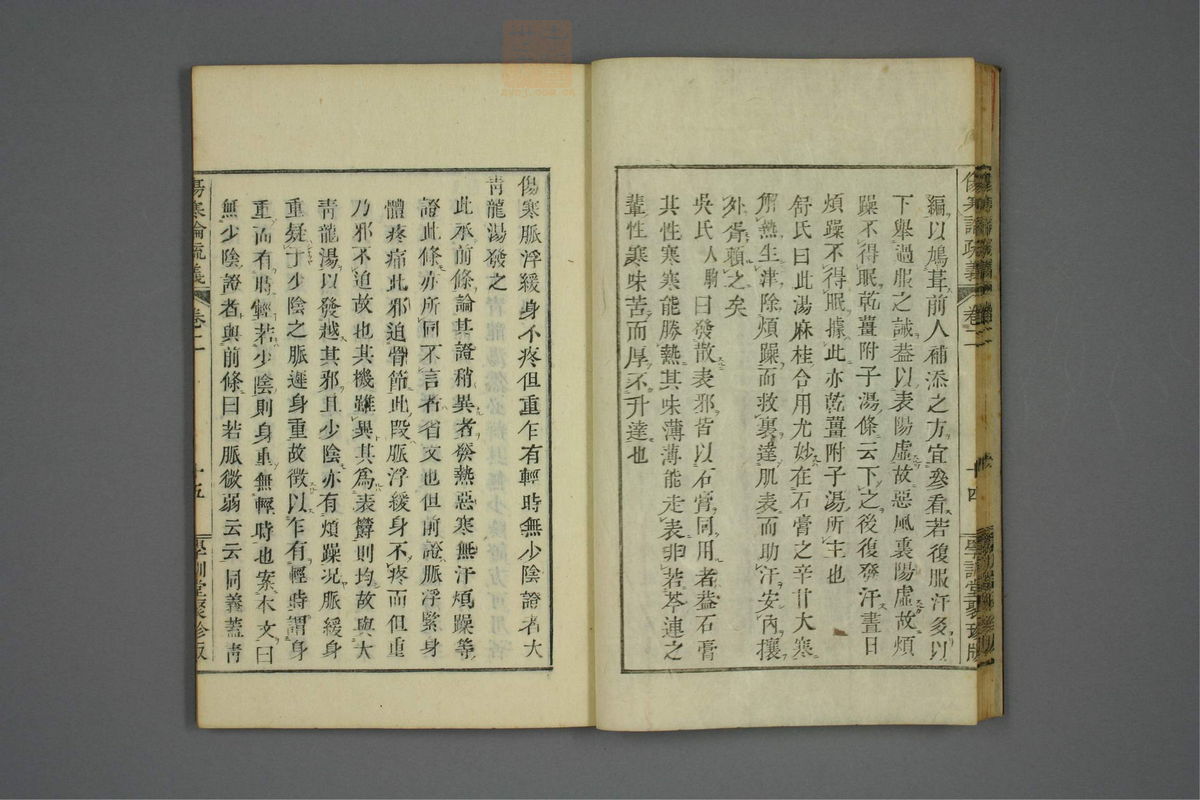 編以鳩葺前人補添之方宜參看若復服汗多以
下舉過服之誡蓋以表陽虛故惡風裏陽虛故煩
躁不得眠乾薑附子湯條云下之後復發汗晝日
煩躁不得眠據此亦乾薑附子湯所主也
舒氏曰此湯麻桂合用尤妙在石膏之辛甘大寒
解熱生津除煩躁而救裏達肌表而助汗安內攘
外胥賴之矣
吳氏人駒曰發散表邪皆以石膏同用者蓋石膏
其性寒寒能勝熱其味薄薄能走表非若芩連之
輩性寒味苦而厚不升達也
傷寒論疏義 卷二 十四 學訓堂聚珍版
傷寒脈浮緩身不疼但重乍有輕時無少陰證者大
青龍湯發之
此承前條論其證稍異者發熱惡寒無汗煩躁等
證此條亦所同不言者省文也但前證脈浮緊身
體疼痛此邪迫骨節此段脈浮緩身不疼而但重
乃邪不迫故也其機雖異其為表鬱則均故與大
青龍湯以發越其邪且少陰亦有煩躁況脈緩身
重疑于少陰之脈遲身重故徵以乍有輕時謂身
重而有時輕若少陰則身重無輕時也案本文曰
無少陰證者與前條曰若脈微弱云云同義蓋青
傷寒論疏義 卷二 十五 學訓堂聚珍版